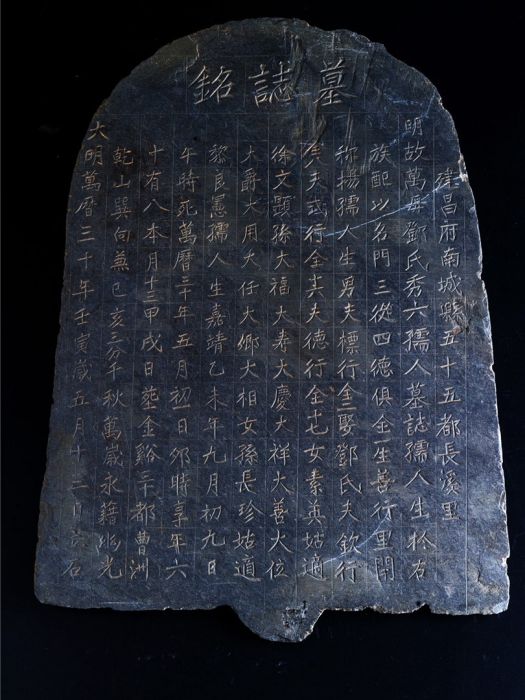 墓誌銘
建昌府南城縣五十五都長溪里
明故萬母鄧氏秀六孺人墓誌孺人生於右
族配以名門三從四德俱全一生善行里閈
称揚孺人生男夫標行全一娶鄧氏夫欽行
夫式行全其夫德行全十七女素英姑適
徐文顕孫大福大寿大慶大祥大善大位
大爵大用大任大鄉大相女孫長珍姑適
黎良憲孺人生嘉靖乙未年九月初九日
午時死萬曆三十年五月初一日卯時享年六
十有八本月十三甲戌日葬金谿三都曹洲
乾山巽向兼巳亥三分千秋萬歲永籍幽光
大明萬曆三十年壬寅歲五月十三日立石